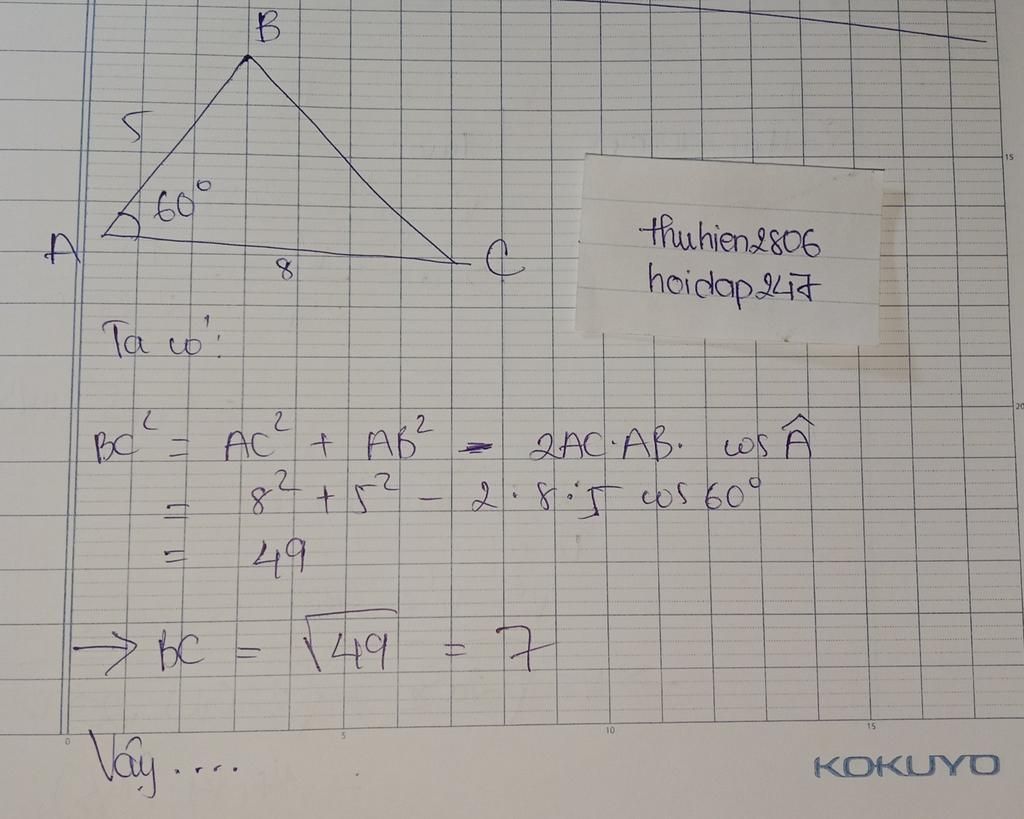 B
5
60°
A
8
C
thuhien2806
hoidap247
Ta có:
BC² = AC² + AB² - 2AC·AB· cos Â
= 8² + 5² - 2·8·5 cos 60°
= 49
→ BC = √49 = 7
Vậy....
15
20
0
5
10
15
KOKUYO